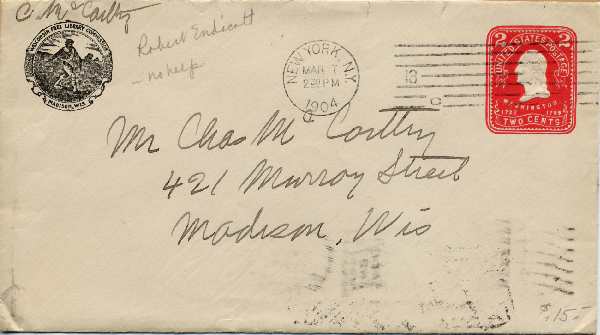 C. McCarthy
WISCONSIN FREE LIBRARY COMMISSION
MADISON, WIS.
Robert Endicott
- no help
NEW YORK, N.Y.
MAR 7
2 PM
1904
13
C
2 2
UNITED STATES POSTAGE
WASHINGTON
1732 1799
TWO CENTS
Mr Chas M Carthy
421 Murray Street
Madison, Wis
.15-